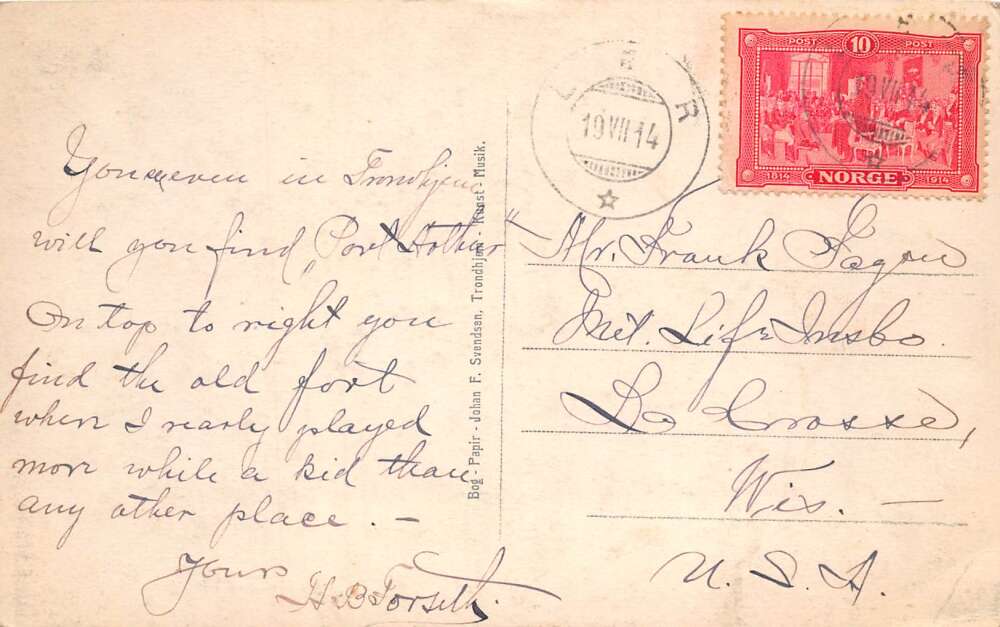 even in Trondhjem
will you find „Port Arthur"
On top to right you
find the old fort
where I nearly played
more while a kid than
any other place. —
Yours
H B Forseth.
Bog - Papir - Johan F. Svendsen, Trondhjem - Kunst - Musik.
19 VII 14
POST 10 POST
19 VII 14
1814 NORGE 1914
Mr. Frank Fagen
Met. Life Ins Co.
La Crosse,
Wis. —
U. S. A.